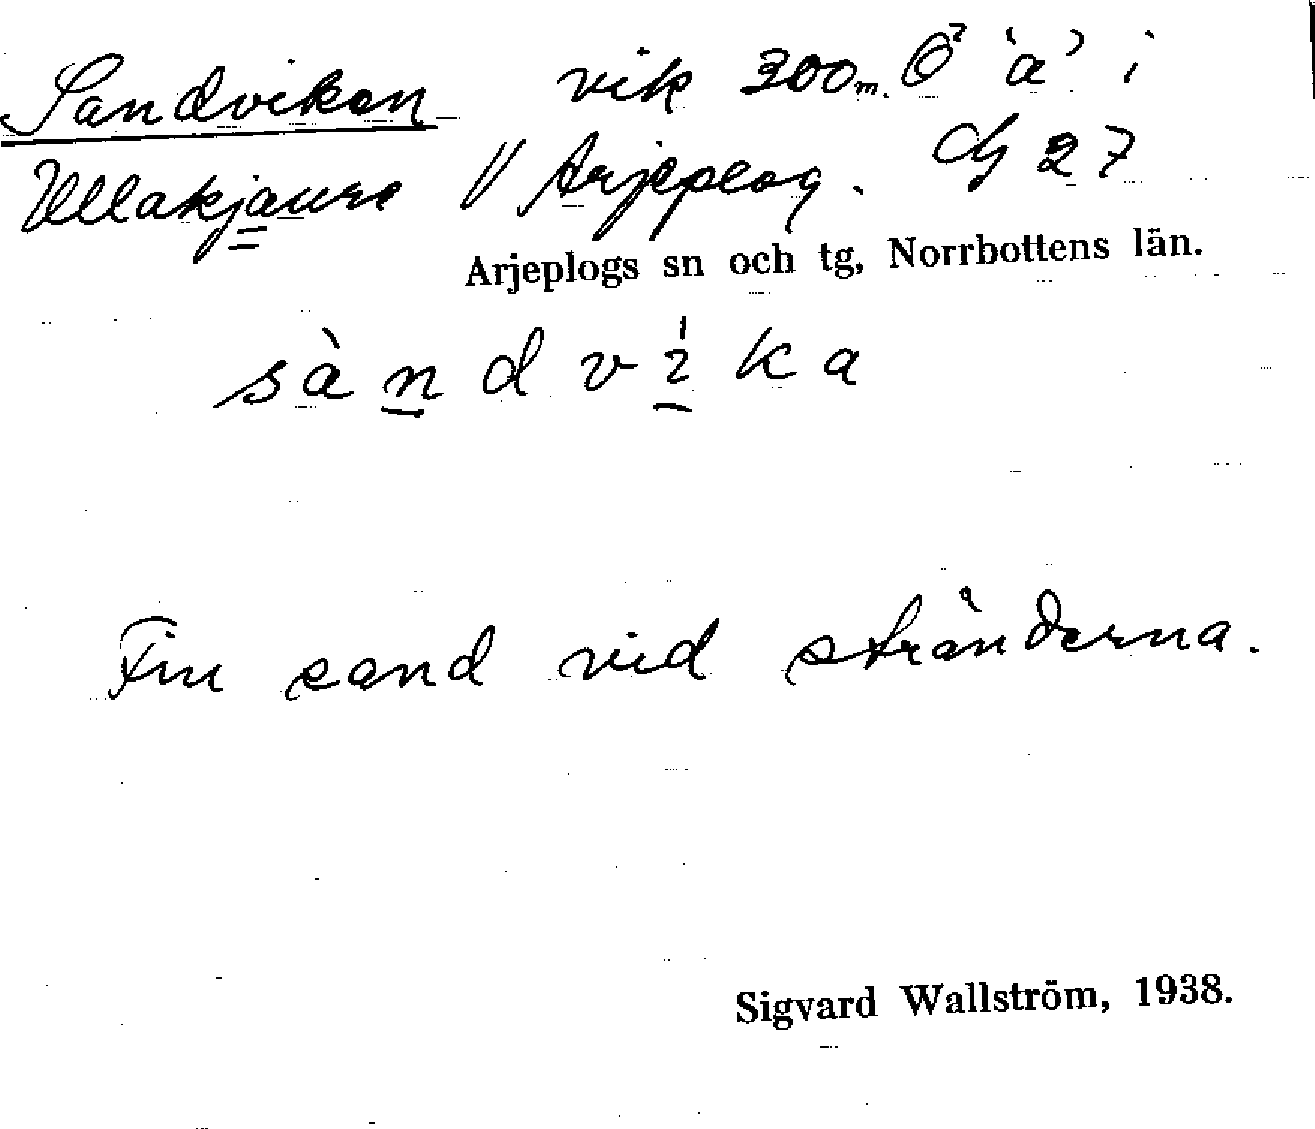 Sandviken vik 300 m. Ö 'a' i
Ullakjaure V Arjeplog. G 27
Arjeplogs sn och tg, Norrbottens län.
sàndvika
Fin sand vid stränderna.
Sigvard Wallström, 1938.